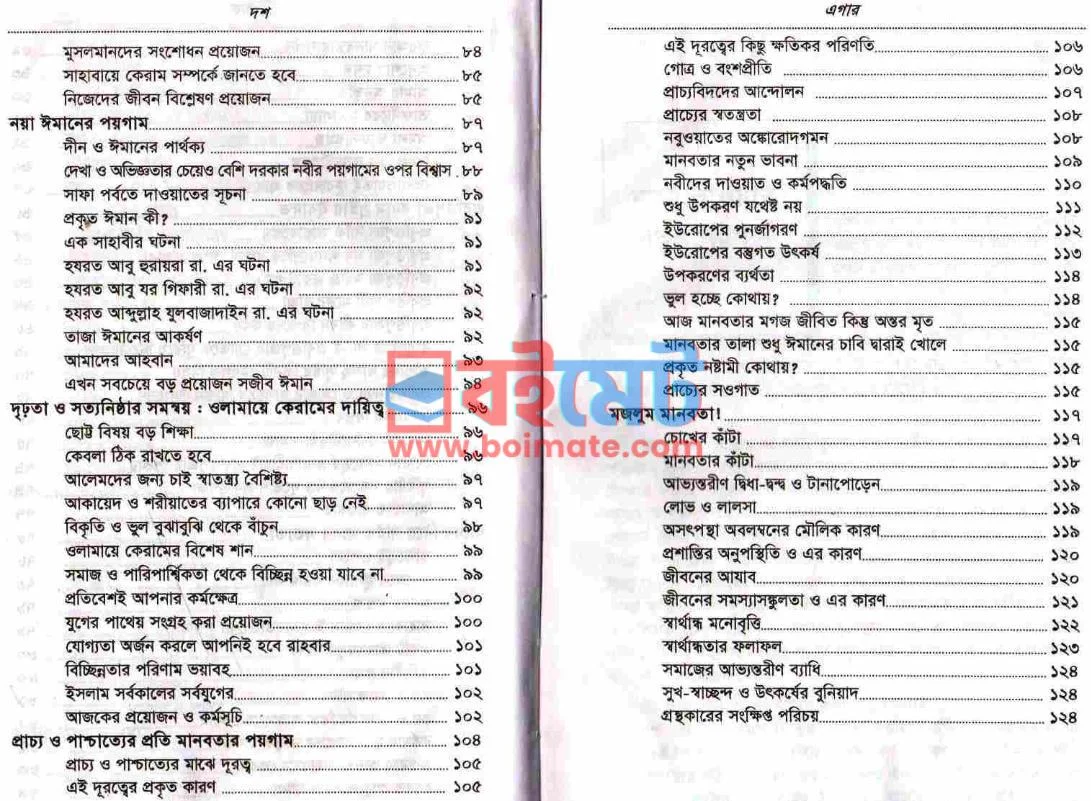 দশ
মুসলমানদের সংশোধন প্রয়োজন ৮৪
সাহাবায়ে কেরাম সম্পর্কে জানতে হবে ৮৫
নিজেদের জীবন বিশ্লেষণ প্রয়োজন ৮৫
নয়া ঈমানের পয়গাম ৮৭
দীন ও ঈমানের পার্থক্য ৮৭
দেখা ও অভিজ্ঞতার চেয়েও বেশি দরকার নবীর পয়গামের ওপর বিশ্বাস . ৮৮
সাফা পর্বতে দাওয়াতের সূচনা ৮৯
প্রকৃত ঈমান কী? ৯১
এক সাহাবীর ঘটনা ৯১
হযরত আবু হুরায়রা রা. এর ঘটনা ৯১
হযরত আবু যর গিফারী রা. এর ঘটনা ৯২
হযরত আব্দুল্লাহ যুলবাজাদাইন রা. এর ঘটনা ৯২
তাজা ঈমানের আকর্ষণ ৯২
আমাদের আহবান ৯৩
এখন সবচেয়ে বড় প্রয়োজন সজীব ঈমান ৯৪
দৃঢ়তা ও সত্যনিষ্ঠার সমন্বয় : ওলামায়ে কেরামের দায়িত্ব ৯৬
ছোট্ট বিষয় বড় শিক্ষা ৯৬
কেবলা ঠিক রাখতে হবে ৯৬
আলেমদের জন্য চাই স্বাতন্ত্র্য বৈশিষ্ট্য ৯৭
আকায়েদ ও শরীয়াতের ব্যাপারে কোনো ছাড় নেই ৯৭
বিকৃতি ও ভুল বুঝাবুঝি থেকে বাঁচুন ৯৮
ওলামায়ে কেরামের বিশেষ শান ৯৯
সমাজ ও পারিপার্শ্বিকতা থেকে বিচ্ছিন্ন হওয়া যাবে না ৯৯
প্রতিবেশই আপনার কর্মক্ষেত্র ১০০
যুগের পাথেয় সংগ্রহ করা প্রয়োজন ১০০
যোগ্যতা অর্জন করলে আপনিই হবে রাহবার ১০১
বিচ্ছিন্নতার পরিণাম ভয়াবহ ১০১
ইসলাম সর্বকালের সর্বযুগের ১০২
আজকের প্রয়োজন ও কর্মসূচি ১০২
প্রাচ্য ও পাশ্চাত্যের প্রতি মানবতার পয়গাম ১০৪
প্রাচ্য ও পাশ্চাত্যের মাঝে দূরত্ব ১০৫
এই দূরত্বের প্রকৃত কারণ ১০৫
এগার
এই দূরত্বের কিছু ক্ষতিকর পরিণতি ১০৬
গোত্র ও বংশপ্রীতি ১০৬
প্রাচ্যবিদদের আন্দোলন ১০৭
প্রাচ্যের স্বতন্ত্রতা ১০৮
নবুওয়াতের অঙ্কোরোদগমন ১০৮
মানবতার নতুন ভাবনা ১০৯
নবীদের দাওয়াত ও কর্মপদ্ধতি ১১০
শুধু উপকরণ যথেষ্ট নয় ১১১
ইউরোপের পুনর্জাগরণ ১১২
ইউরোপের বস্তুগত উৎকর্ষ ১১৩
উপকরণের ব্যর্থতা ১১৪
ভুল হচ্ছে কোথায়? ১১৪
আজ মানবতার মগজ জীবিত কিন্তু অন্তর মৃত ১১৫
মানবতার তালা শুধু ঈমানের চাবি দ্বারাই খোলে ১১৫
প্রকৃত নষ্টামী কোথায়? ১১৫
প্রাচ্যের সওগাত ১১৫
মজলুম মানবতা! ১১৭
চোখের কাঁটা ১১৭
মানবতার কাঁটা ১১৮
আভ্যন্তরীণ দ্বিধা-দ্বন্দ্ব ও টানাপোড়েন ১১৯
লোভ ও লালসা ১১৯
অসৎপন্থা অবলম্বনের মৌলিক কারণ ১১৯
প্রশান্তির অনুপস্থিতি ও এর কারণ ১২০
জীবনের আযাব ১২০
জীবনের সমস্যাসঙ্কুলতা ও এর কারণ ১২১
স্বার্থান্ধ মনোবৃত্তি ১২২
স্বার্থান্ধতার ফলাফল ১২৩
সমাজের আভ্যন্তরীণ ব্যাধি ১২৪
সুখ-স্বাচ্ছন্দ ও উৎকর্ষের বুনিয়াদ ১২৪
গ্রন্থকারের সংক্ষিপ্ত পরিচয় ১২৪
বইমেট
www.boimate.com